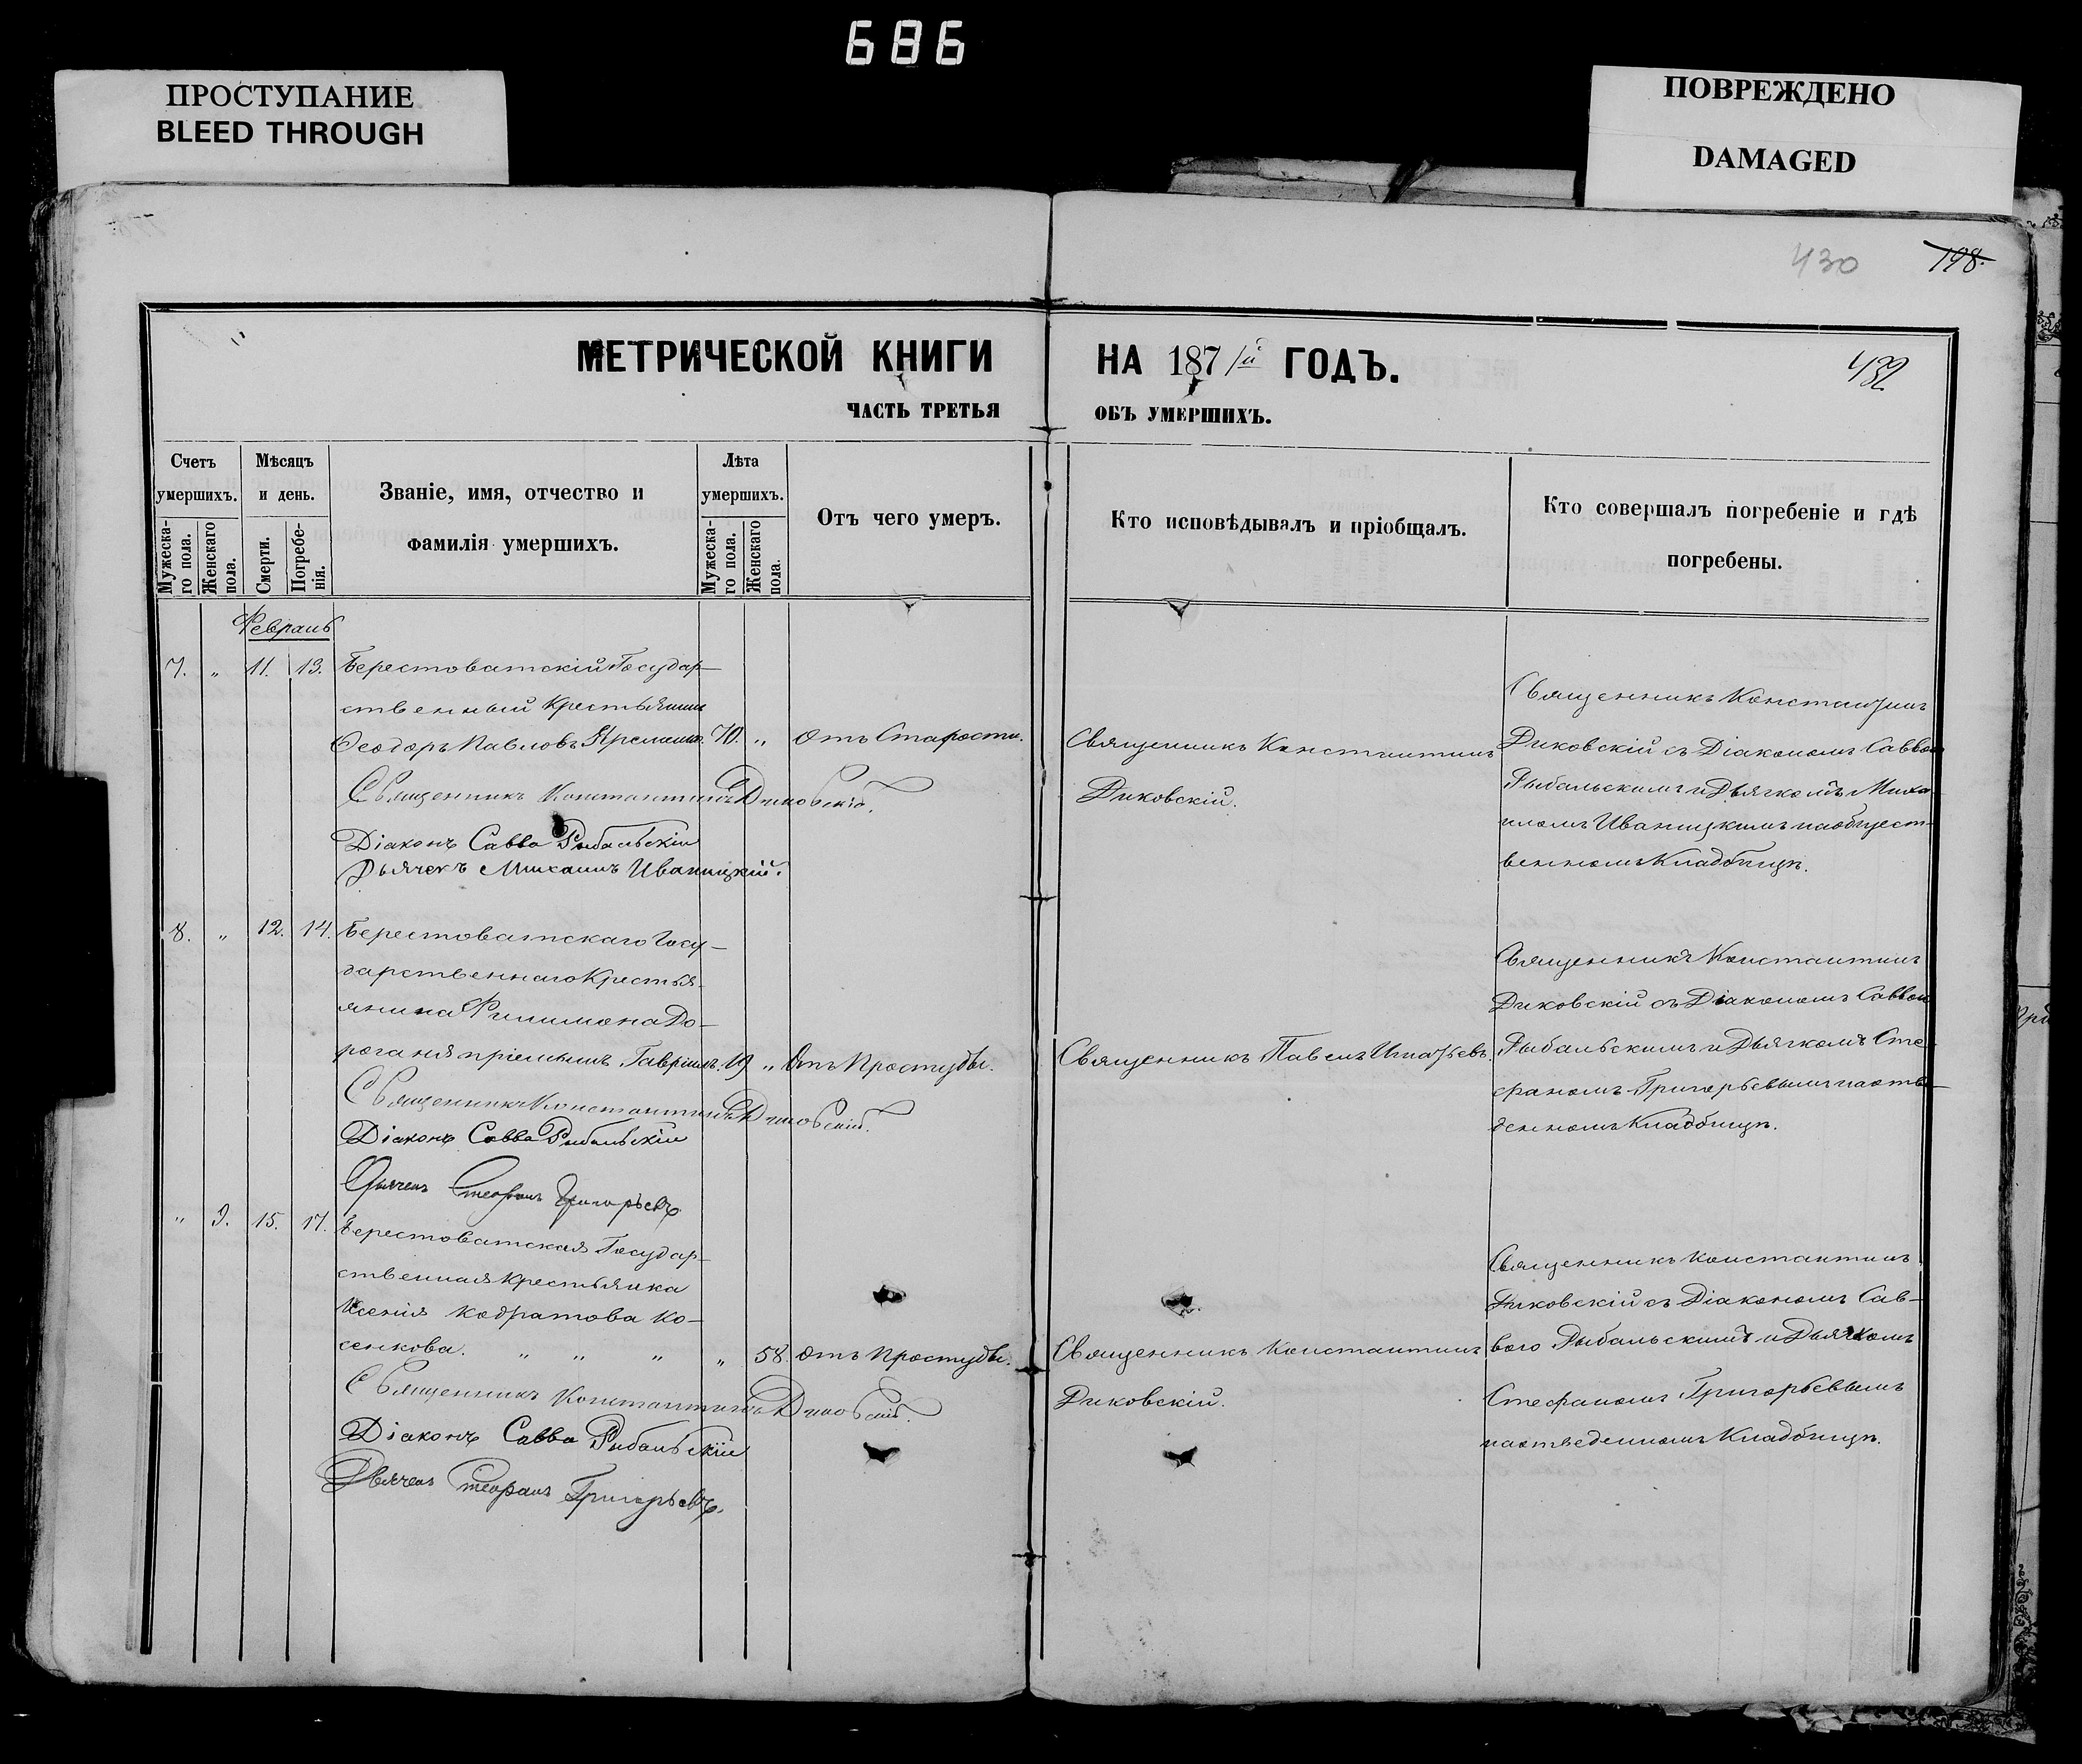 686
ПРОСТУПАНИЕ
BLEED THROUGH
ПОВРЕЖДЕНО
DAMAGED
430
198.
432
МЕТРИЧЕСКОЙ КНИГИ НА 187/й ГОДЪ.
ЧАСТЬ ТРЕТЬЯ ОБЪ УМЕРШИХЪ.
Счетъ умершихъ.
Мужеска-го пола.
Женскаго пола.
Мѣсяцъ и день.
Смерти.
Погребе-нія.
Званіе, имя, отчество и
фамилія умершихъ.
Лѣта умершихъ.
Мужеска-го пола.
Женскаго пола.
Отъ чего умеръ.
Кто исповѣдывалъ и пріобщалъ.
Кто совершалъ погребеніе и гдѣ
погребены.
Февраль
7. „ 11. 13. Берестоватскій Государ-
ственный Крестьянинъ
Ѳеодоръ Павловъ 70. „ отъ Старости.
Священникъ Константинъ Диковскій.
Діаконъ Савва Рыбальскій
Дьячекъ Михаилъ Иваницкій.
Священникъ Константинъ
Диковскій.
Священникъ Константинъ
Диковскій съ Діакономъ Саввою
Рыбальскимъ и Дьячкомъ Миха-
иломъ Иваницкимъ на общест-
венномъ Кладбищѣ.
8. „ 12. 14. Берестоватскаго Госу-
дарственнаго Крестья-
янина Филимона До-
роганя пріемышъ Гавріилъ. 19 „ Отъ Простуды.
Священникъ Константинъ Диковскій.
Діаконъ Савва Рыбальскій
Дьячекъ Стефанъ Григорьевъ
Священникъ Павелъ Игнатьевъ.
Священникъ Константинъ
Диковскій съ Діакономъ Саввою
Рыбальскимъ и Дьячкомъ Сте-
фаномъ Григорьевымъ на отве-
денномъ Кладбищѣ.
„ 9. 15. 17. Берестоватская Государ-
ственная Крестьянка
Ксенія Кодратова Ко-
сенкова. „ „ „ „ 58. отъ Простуды.
Священникъ Константинъ Диковскій.
Діаконъ Савва Рыбальскій
Дьячекъ Стефанъ Григорьевъ.
Священникъ Константинъ
Диковскій.
Священникъ Константинъ
Диковскій съ Діакономъ Сав-
вою Рыбальскимъ и Дьячкомъ
Стефаномъ Григорьевымъ
на отведенномъ Кладбищѣ.